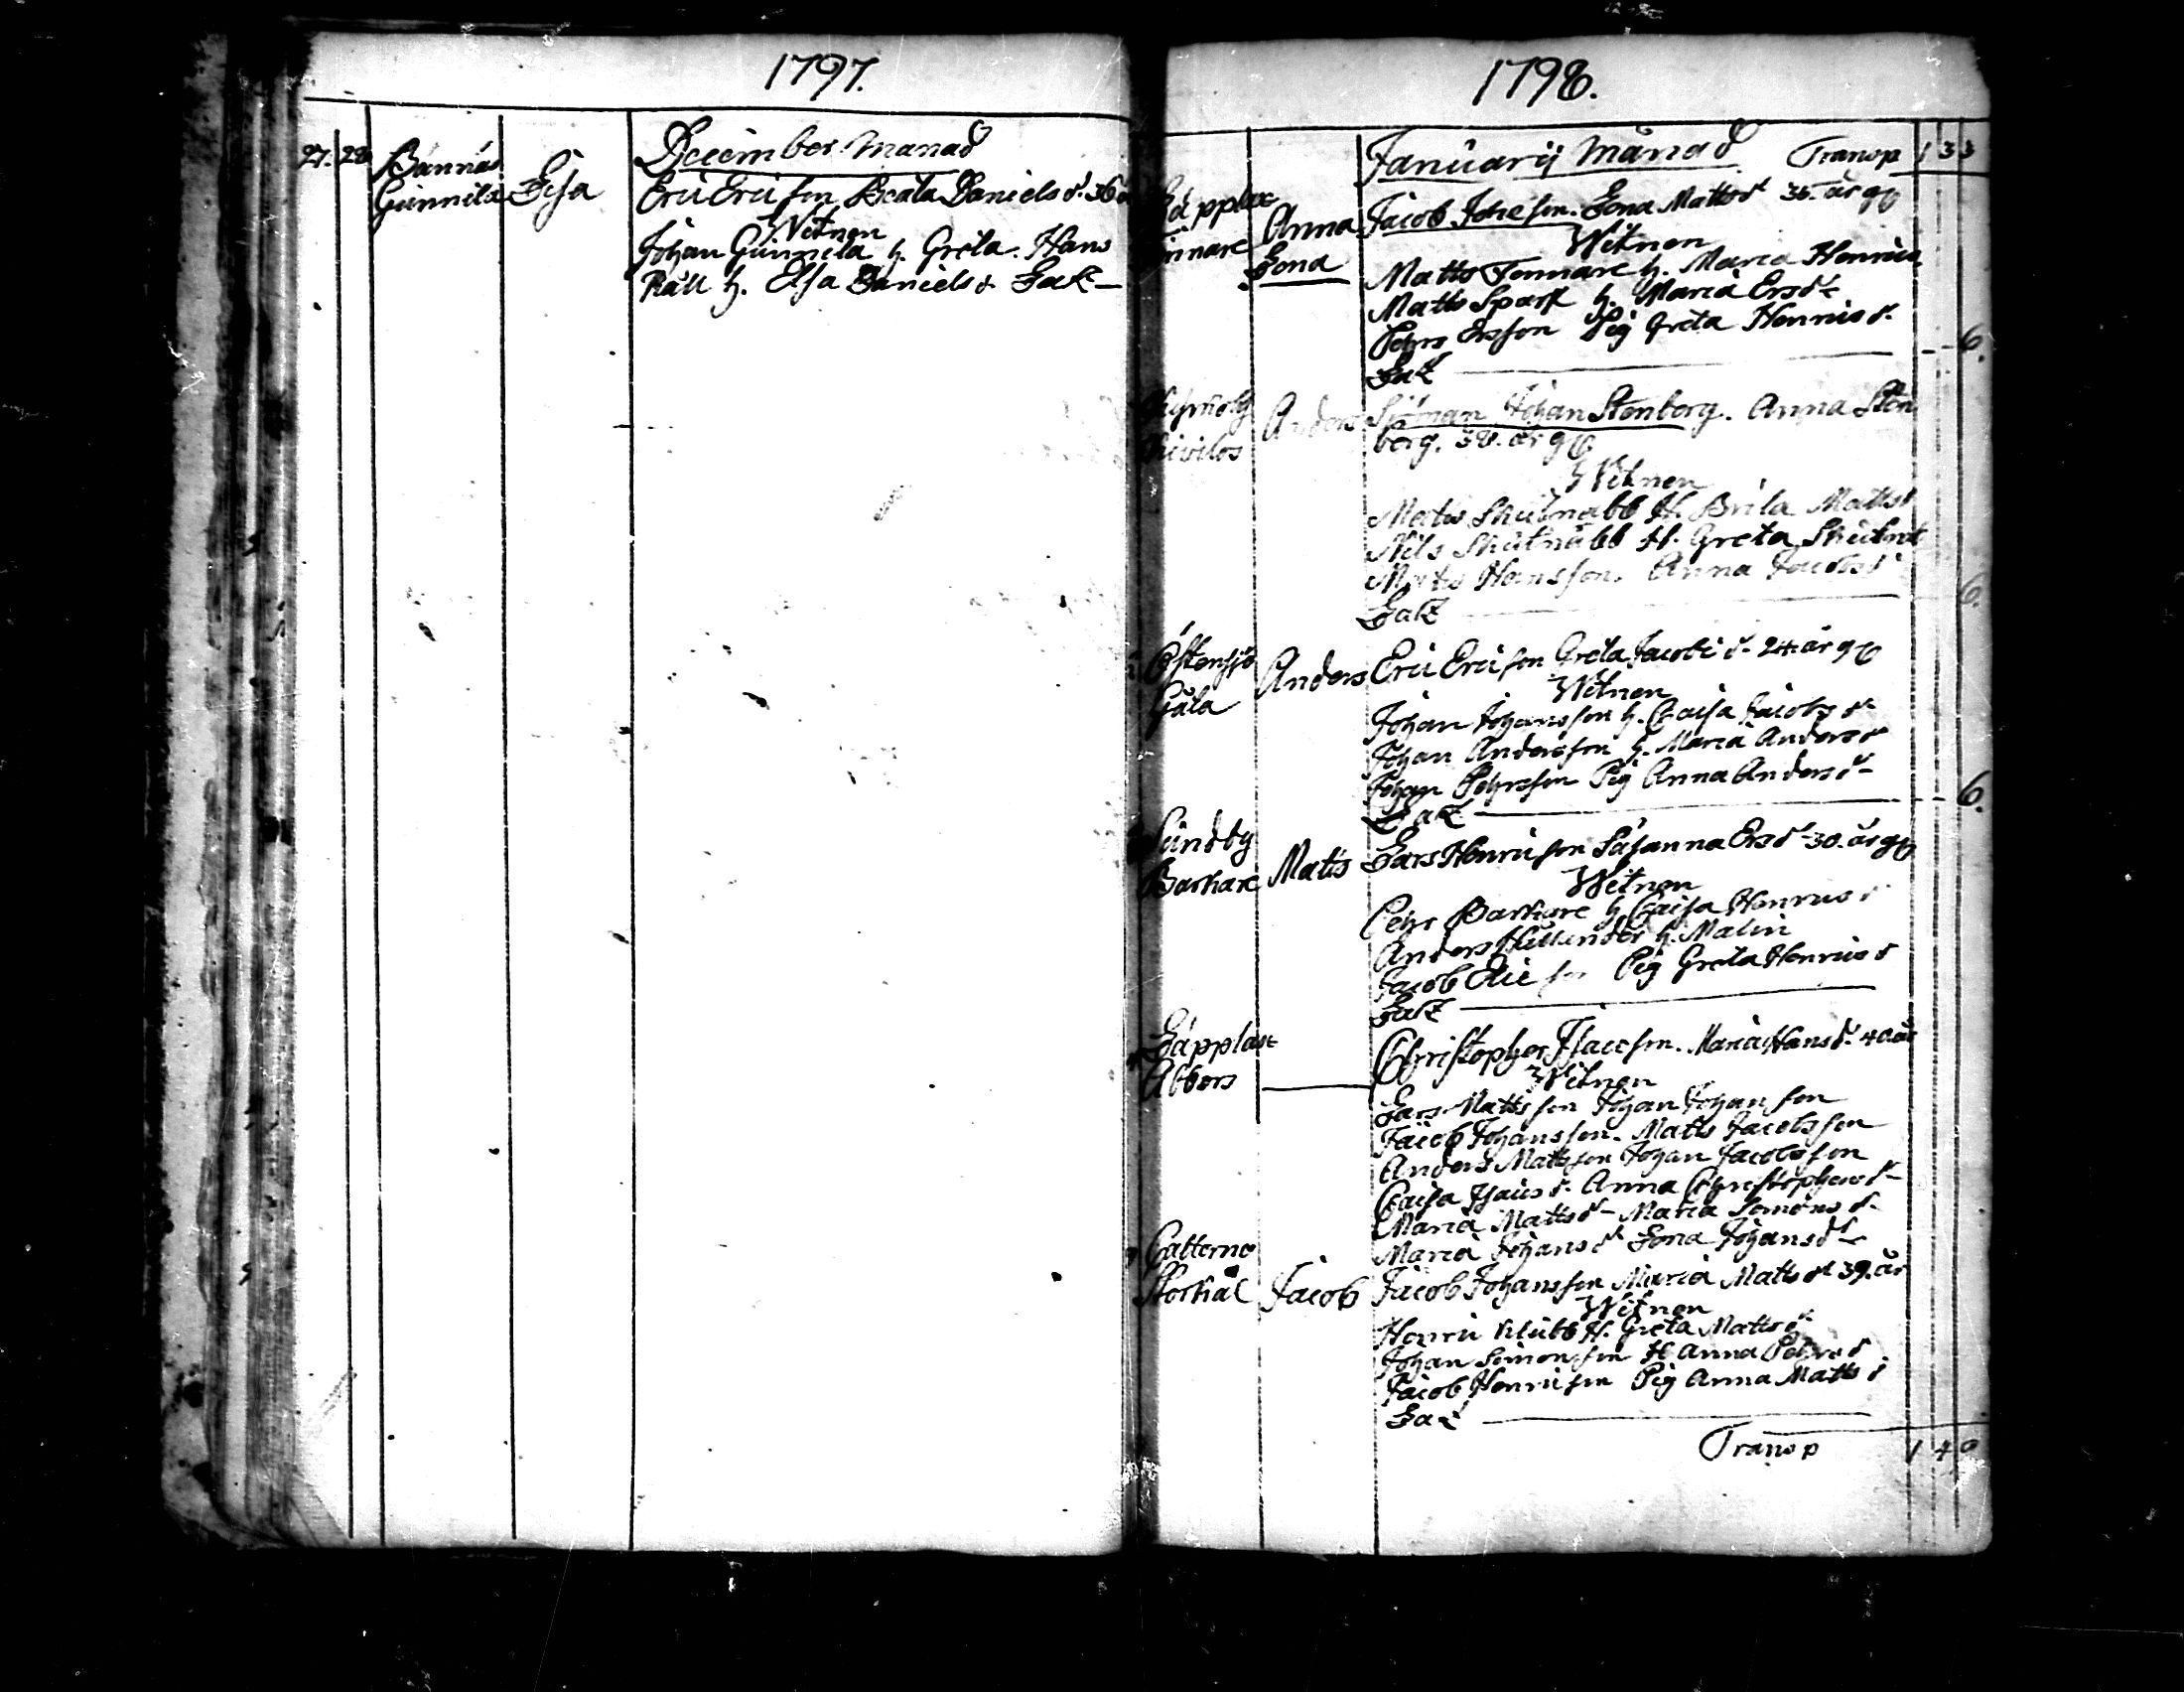 1797.
December Månad
27. 28. Bännäs Gunnila Lisa Eric Ericsson Beata Daniels d. 36
Witnen
Johan Gunnila h. Greta. Hans
Räll h. Elsa Daniels d. Sal. —
1798.
Januarij Månad Transp 1 3 3
Läpplax Anna Lena Jacob Johnson. Lena Matts d 35. år g.
Witnen
Matts Finnare h. Maria Henrics
Matts Spark h. Maria Ers d.
Pehr Ersson Pig Greta Henrics d.
Sal. — 6.
Anders Johan Stenberg. Anna Sten
berg. 38. år g.
Witnen
Matts Skutnabb H. Brita Matts d
Nils Skutnabb H. Greta Skutnab
Matts Hansson. Anna Jacobs d
Sal. — 6.
Östensjö Gula Anders Eric Ericsson Greta Jacobs d. 24. år g.
Witnen
Johan Johansson h. Caisa Jacobs d.
Johan Andersson h. Maria Anders d
Johan Pehrsson Pig Anna Anders d.
Sal. — 6.
Sundby Barkare Matts Lars Henricson Susanna Ers d 30. år g.
Witnen
Pehr Barkare h. Caisa Henrics d
Anders h. Malin
Jacob Eric son Pig Greta Henrics d
Sal. —
Läpplax Abbors — Christopher Isacson. Maria Hans d. 40 år
Witnen
Lars Mattsson Johan Johanson
Jacob Johansson. Matts Jacobsson
Anders Mattsson Johan Jacobsson
Caisa Isacs d. Anna Christophers d.
Maria Matts d. Maria Simons d.
Maria Johans d Lena Johans d.
Katternö Storkåll Jacob Jacob Johansson Maria Matts d 39. år
Witnen
Henric Klubb H. Greta Matts d.
Johan Simonsson H. Anna Pehrs d
Jacob Henricson Pig Anna Matts d
Sal. —
Transp 1 4